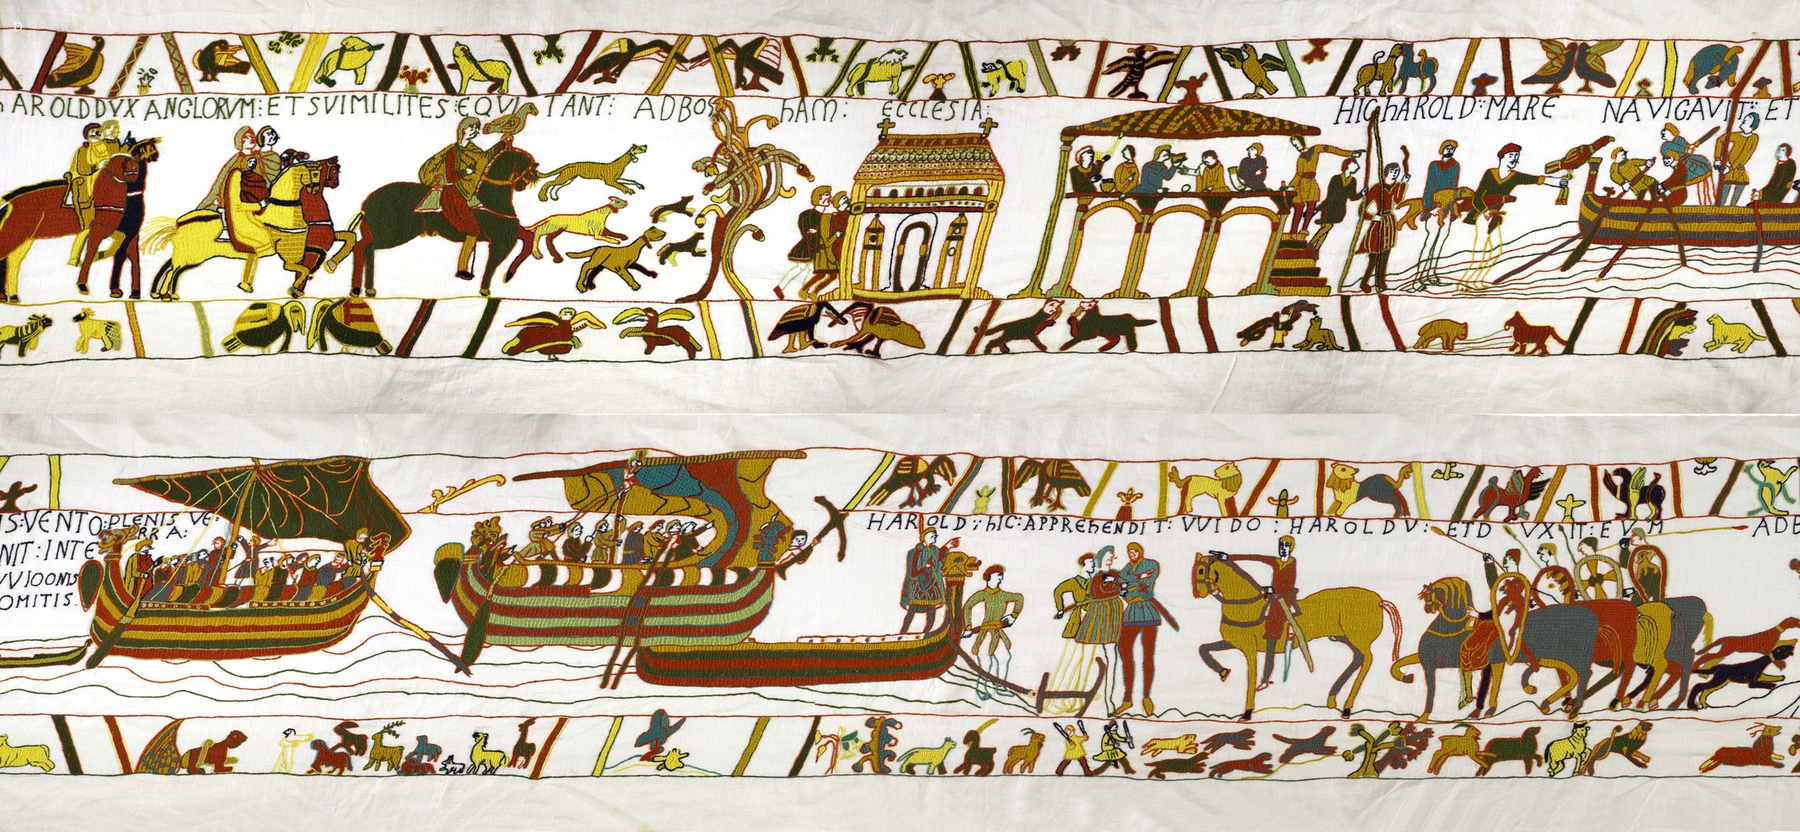 hAROLD DVX ANGLORVM: ET SVI MILITES: EQVI TANT: AD BOS hAM: ECCLESIA:
HIC hAROLD: MARE NAVIGAVIT: ET
IS: VENTO: PLENIS VE:
RRA:
NIT: INTE
VVIDONIS
OMITIS
HAROLD: hIC: APPREhENDIT: VVIDO: HAROLDV: ET D VX IT: EVM AD B